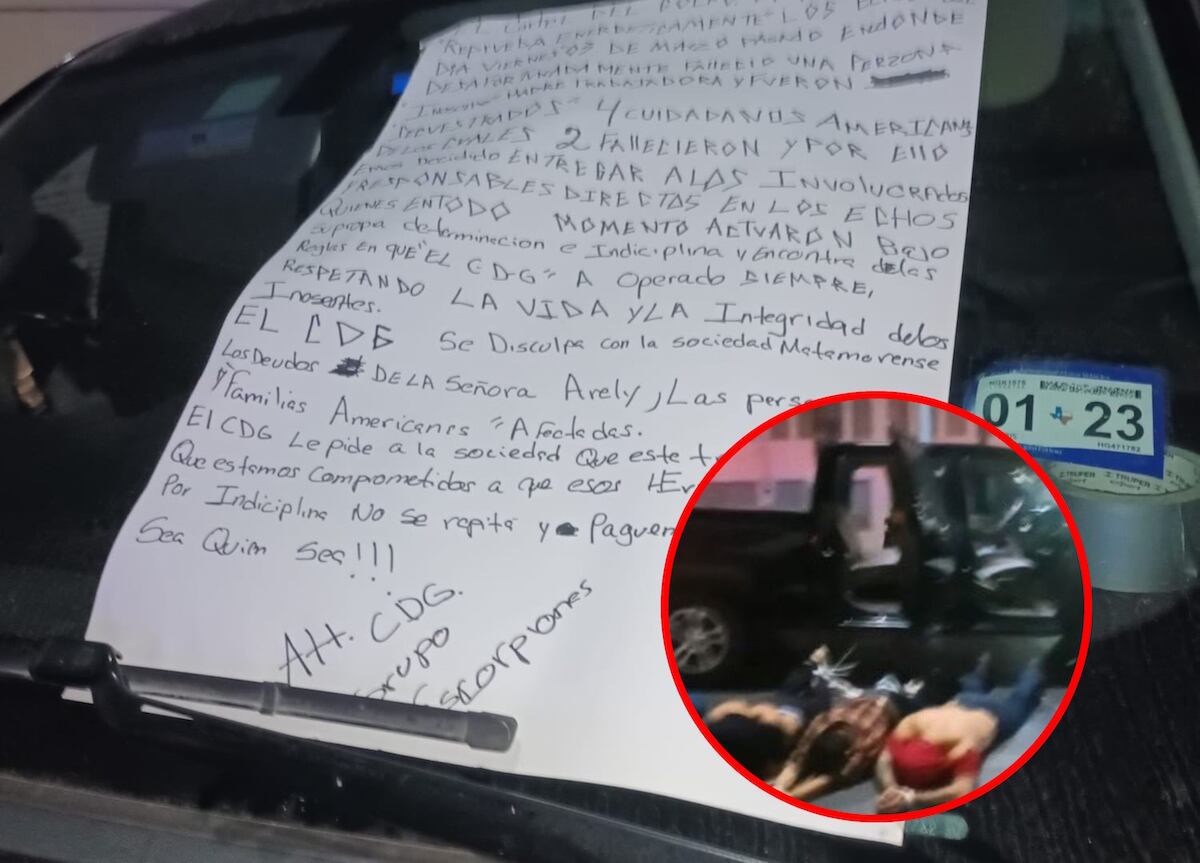 "REPRUEBA ENERGETICAMENTE" LOS
DIA VIERNES 03 DE MARZO PASADO ENDONDE
DESAFORANADAMENTE FALLECIO UNA PERZONA
MADRE TRABAJADORA Y FUERON
SECUESTRADOS" 4 CUIDADANOS AMERICANS
DE LOS CUALES 2 FALLECIERON Y POR ELLO
Emos Decidido ENTREGAR A LOS INVOLUCRADOS
Y RESPONSABLES DIRECTOS EN LOS ECHOS
QUIENES ENTODO MOMENTO ACTUARON BAJO
su propa determinecion e Indiciplina y Encontra delas
Reglas En QUE "EL CDG" A Operado SIEMPRE,
RESPETANDO LA VIDA Y LA Integridad delos
Inosentes.
EL CDG Se Disculpa con la sociedad Matamorense
Los Deudos DE LA Señora Arely, Las
y Familias Americanas "Afectadas.
El CDG Le pide a la sociedad Que este
Que estamos Comprometidos a que esos
Por Indiciplina No Se repita y Paguen
Sea Quien Sea!!!
Att. CDG.
Grupo
Escorpiones
01 23
HG471782
TRUPER